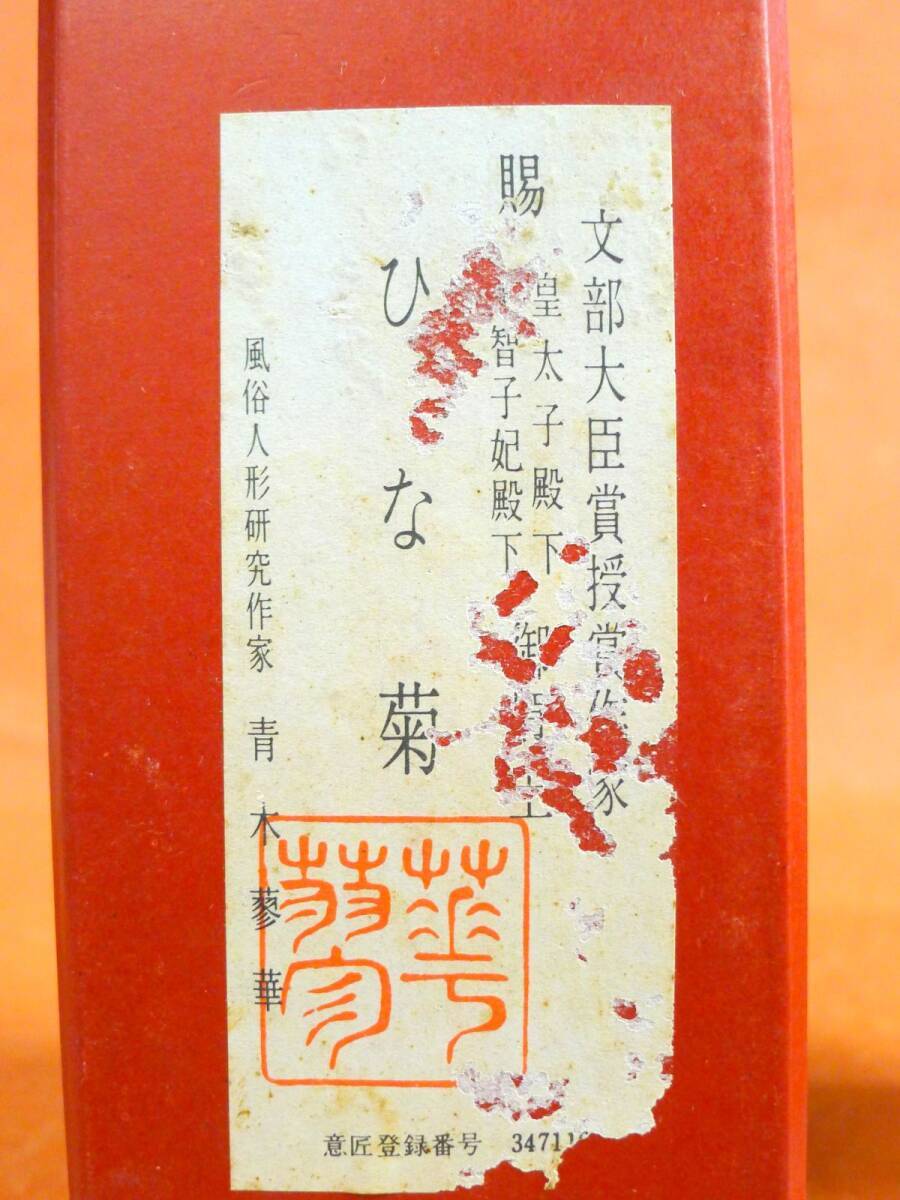 文部大臣賞授賞作家
賜
皇太子殿下
智子妃殿下
御
上
ひな菊
風俗人形研究作家 青木蓼華
意匠登録番号 34711